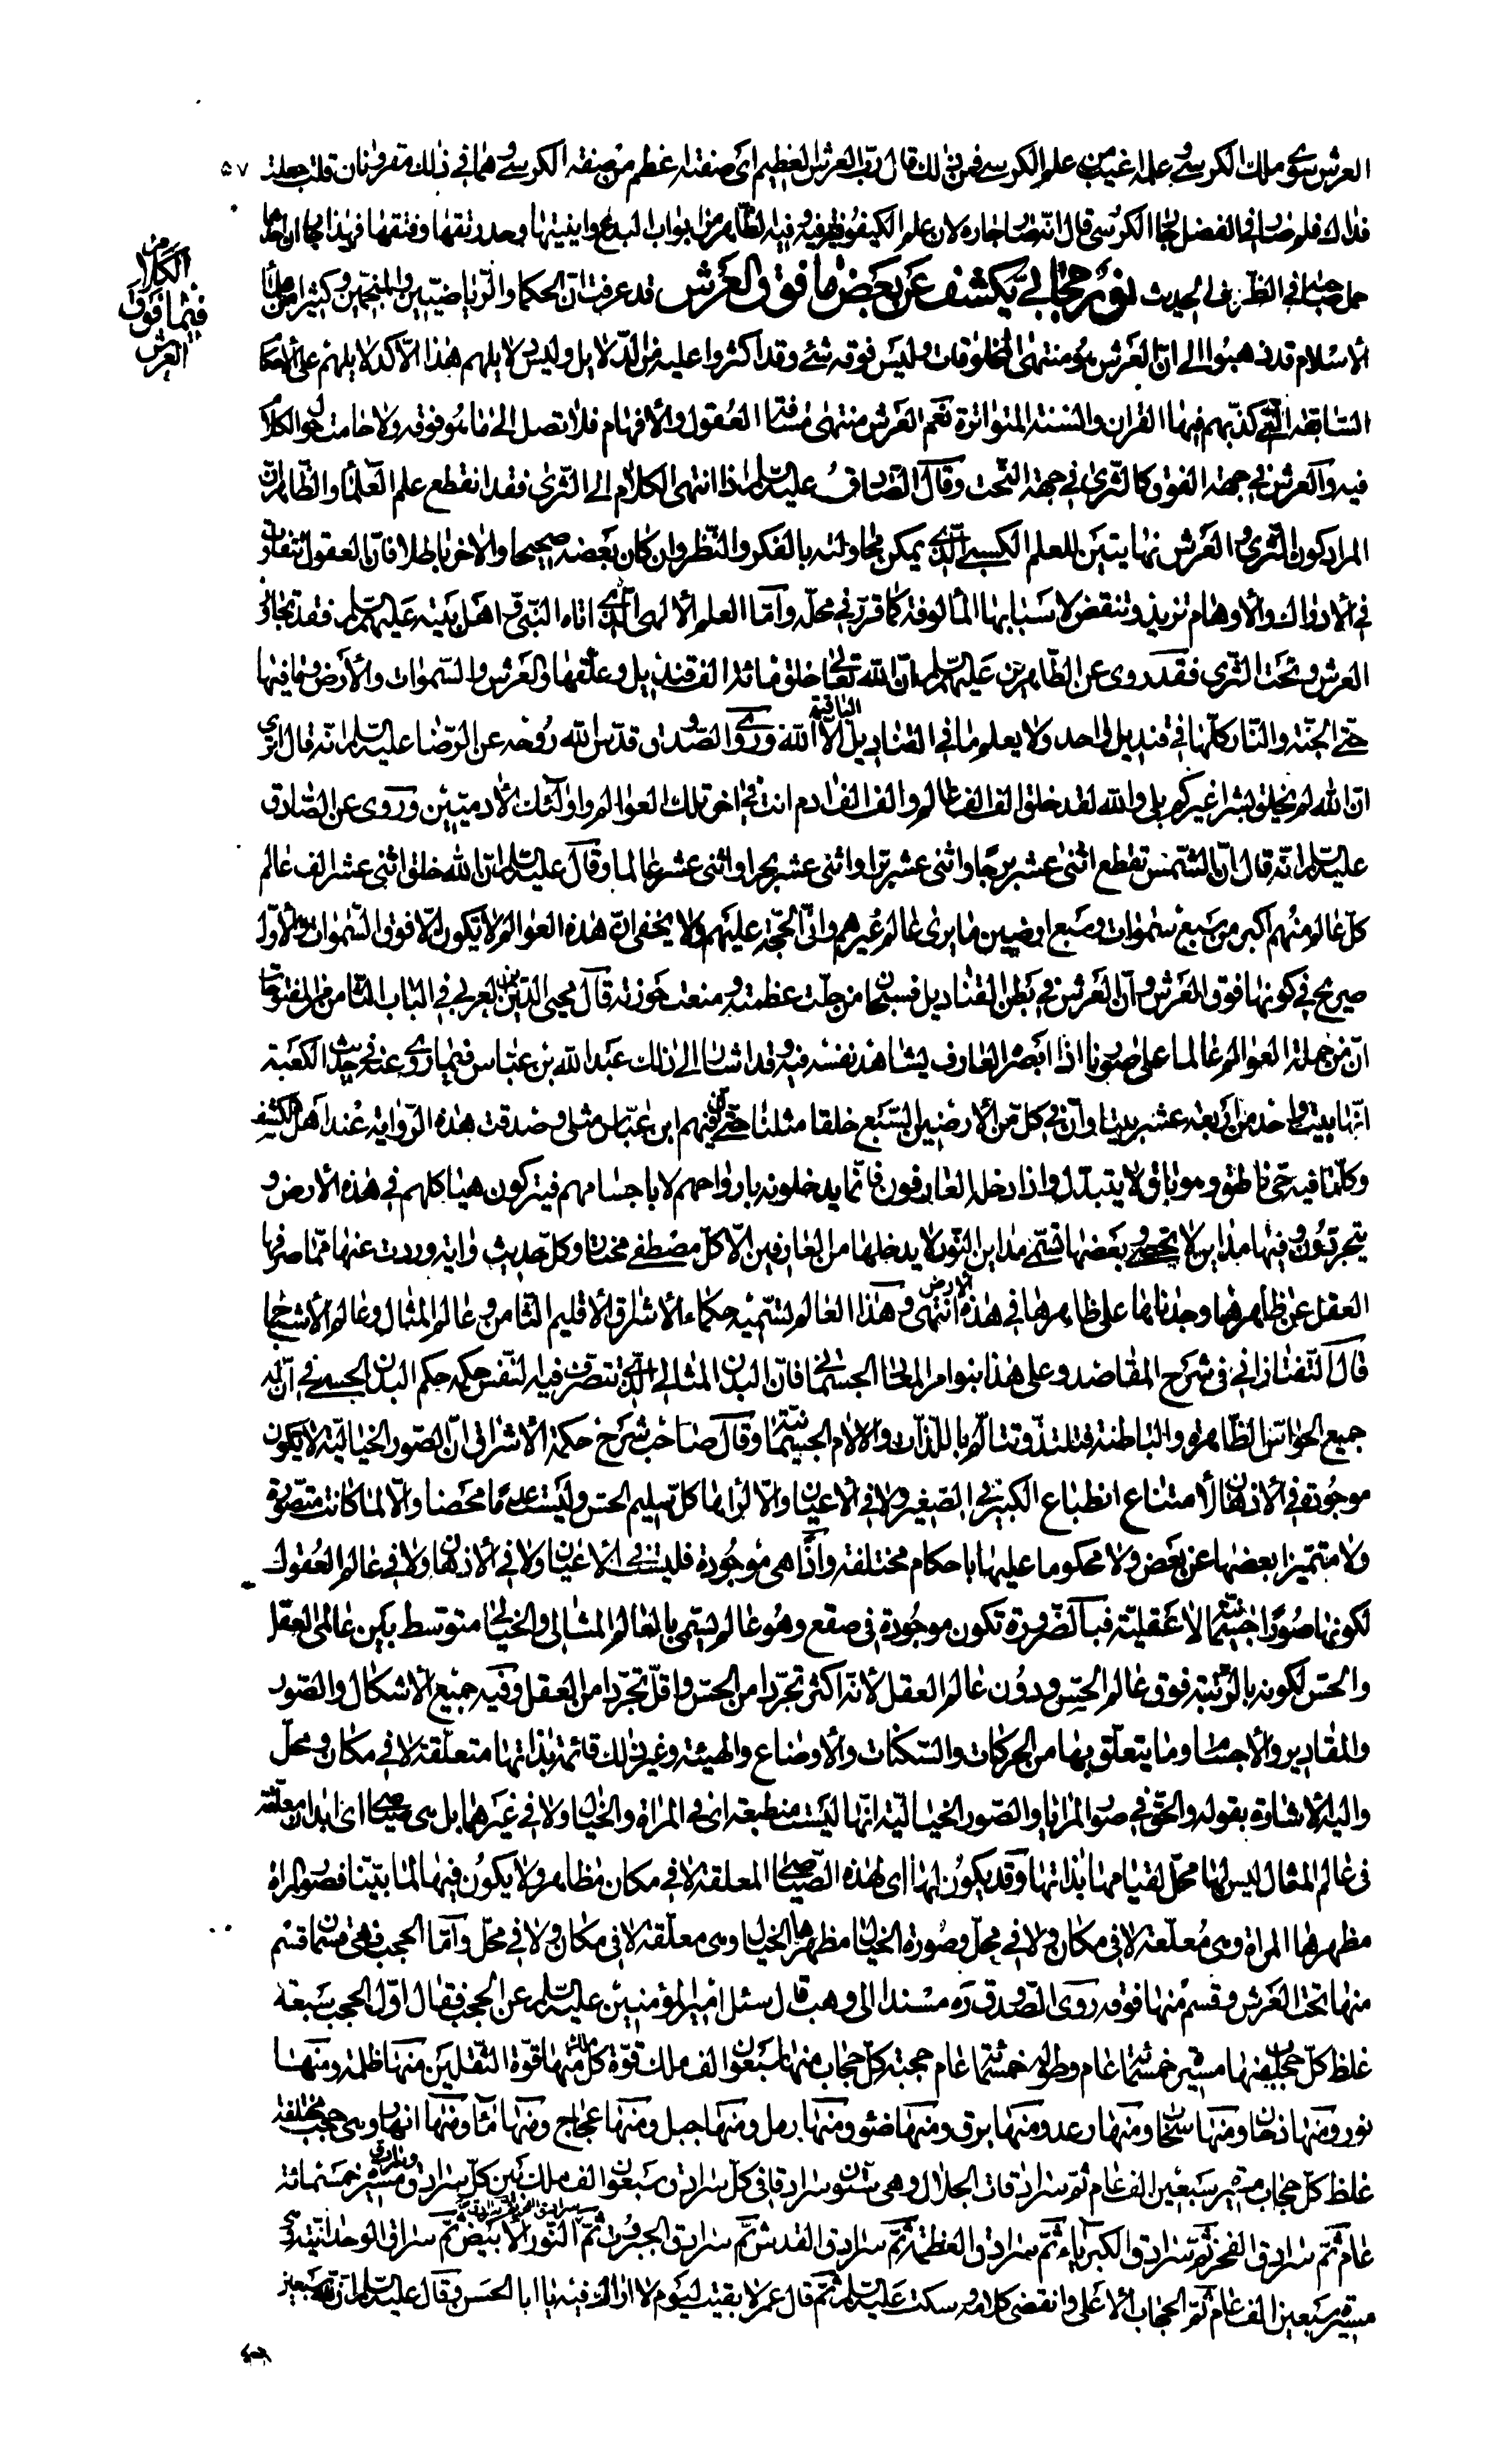 العرش سوى ملك الكرسي وعلمه اغيب من علم الكرسي فمن ذلك قال رب العرش العظيم اى صفته اعظم من صفة الكرسي وهما في ذلك مقرونان قلت جعلت
٥٧
فداك فلم صار في الفضل جار الكرسى قال انه صار جاره لان علم الكيفوفية فيه وفيه الظاهر من ابواب البداء واينيتها وحد رتقها وفتقها فهذان جاران احدهما
حمل صاحبه في الظرف الحديث نور حجابي يكشف عن بعض ما فوق العرش قد عرفت ان الحكماء والرياضيين والمنجمين وكثيرا من علماء
الكلام
فيما فوق
العرش
الاسلام قد ذهبوا الى ان العرش هو منتهى المخلوقات وليس فوقه شئ وقد اكثروا عليه من الدلايل وليس دلايلهم هذا الا كدلايلهم على الاحكام
السابقة التي كذبهم فيها القران والسنة المتواترة نعم العرش منتهى مسافة العقول والافهام فلا تصل الى ما هو فوقه ولا حامت حول الكلام
فيه والعرش في جهة الفوق كالثرى في جهة التحت وقال الصادق عليه السلام اذا انتهى الكلام الى الثرى فقد انقطع علم العلماء والظاهر ان
المراد كون الثرى والعرش نهايتين للعلم الكسبي الذي يمكن محاولته بالفكر والنظر وان كان بعضه صحيحا والاخر باطلا فان العقول تتفاوت
في الادراك والاوهام تزيد وتنقص لاسبابها المألوفة كما قرر في محله واما العلم الالهى الذي اتاه النبي واهل بيته عليهم السلام فقد تجاوز
العرش وتحت الثرى فقد روى عن الطاهرين عليهم السلام ان الله تعالى خلق مائة الف قنديل وعلقها والعرش والسموات والارض وما فيها
حتى الجنة والنار كلها في قنديل واحد ولا يعلم ما في القناديل الباقية الا الله وروى الصدوق قدس الله روحه عن الرضا عليه السلام انه قال اترى
ان الله لم يخلق بشرا غيركم بلى والله لقد خلق الف الف عالم والف الف ادم انت في اخر تلك العوالم واولئك الادميين وروى عن الصادق
عليه السلام انه قال ان الشمس تقطع اثنى عشر برجا واثنى عشر برا واثنى عشر بحرا واثنى عشر عالما وقال عليه السلام ان لله خلق اثنى عشر الف عالم
كل عالم منهم اكبر من سبع سموات وسبع ارضين ما يرى عالم غيرهم واني الحجة عليهم ولا يخفى ان هذه العوالم لا يكون الا فوق السموات والاول
صريح في كونها فوق العرش وان العرش في بطن القناديل فسبحان من جلت عظمته ومنعت حوزته قال محيى الدين بن العربي في الباب الثامن من الفتوحات
ان من جملة العوالم عالما على صورنا اذا ابصره العارف يشاهد نفسه فيه وقد اشار الى ذلك عبد الله بن عباس فيما روى عنه في حديث الكعبة
انها بيت واحد من اربعة عشر بيتا وان في كل من الارضين السبع خلقا مثلنا حتى ان فيهم ابن عباس مثلى وصدقت هذه الرواية عند اهل الكشف
وكلما فيه حي ناطق وهو باق لا يتبدل واذا دخله العارفون فانما يدخلونه بارواحهم لا باجسامهم فيتركون هياكلهم في هذه الارض و
يتجردون وفيها مداين لا تحصى وبعضها تسمى مداين النور لا يدخلها من العارفين الا كل مصطفى مختار وكل حديث واية وردت عنها مما صرفها
العقل عن ظاهرها وجدناها على ظاهرها في هذه الارض انتهى وهذا العالم تسميه حكماء الاشراق الاقليم الثامن وعالم المثال وعالم الاشباح
قال التفتازاني في شرح المقاصد وعلى هذا بنوا امر المعاد الجسماني فان البدن المثالي الذي تتصرف فيه النفس حكمه حكم البدن الحسي في ان له
جميع الحواس الظاهرة والباطنة فتلتذ وتتألم باللذات والالام الجسمانية وقال صاحب شرح حكمة الاشراق ان الصور الخيالية لا يكون
موجودة في الاذهان لامتناع انطباع الكبير في الصغير ولا في الاعيان والا لرأها كل سليم الحس وليست عدما محضا والا لما كانت متصورة
ولا متميزا بعضها عن بعض ولا محكوما عليها باحكام مختلفة واذا هي موجودة فليست في الاعيان ولا في الاذهان ولا في عالم العقول
لكونها صورا جسمانية لا عقلية فبالضرورة تكون موجودة في صقع وهو عالم يسمى بالعالم المثالى والخيالي متوسط بين عالمى العقل
والحس لكونه بالرتبة فوق عالم الحس ودون عالم العقل لانه اكثر تجردا من الحس واقل تجردا من العقل وفيه جميع الاشكال والصور
والمقادير والاجسام وما يتعلق بها من الحركات والسكنات والاوضاع والهيئة وغير ذلك قائمة بذاتها متعلقة لا في مكان ومحل
واليه الاشارة بقوله والحق في صور المرايا والصور الخيالية انها ليست منطبعة اى في المراة والخيال ولا في غيرهما بل هى صياصى اى ابدان معلقة
في عالم المثال ليس لها محل لقيامها بذاتها وقد يكون لها اى لهذه الصياصي المعلقة لا في مكان مظاهر ولا يكون فيها لما بينا فصور المراة
مظهرها المراة وهى معلقة لا في مكان ولا في محل وصورة الخيال مظهرها الخيال وهى معلقة لا في مكان ولا في محل واما الحجب فهى قسمان قسم
منها تحت العرش وقسم منها فوقه روى الصدوق ره مسندا الى وهب قال سئل امير المؤمنين عليه السلام عن الحجب فقال اول الحجب سبعة
غلظ كل حجاب منها مسيرة خمسمائة عام وطوله خمسمائة عام حجبة كل حجاب منها سبعون الف ملك قوة كل ملك منها قوة الثقلين منها ظلمة ومنها
نور ومنها دخان ومنها سحاب ومنها رعد ومنها برق ومنها ضوء ومنها رمل ومنها جبل ومنها عجاج ومنها ماء ومنها انهار وهى حجب مختلفة
غلظ كل حجاب مسيرة سبعين الف عام ثم سرادقات الجلال وهى ستون سرادقا في كل سرادق سبعون الف ملك بين كل سرادق وسرادق مسيرة خمسمائة
عام ثم سرادق الفخر ثم سرادق الكبرياء ثم سرادق العظمة ثم سرادق القدس ثم سرادق الجبروت ثم النور الابيض ثم سرادق الوحدانية وهي
مسيرة سبعين الف عام ثم الحجاب الاعلى وانقضى كلامه وسكت عليه السلام ثم قال عمر لا بقيت ليوم لا اراك فيه يا ابا الحسن وقال عليه السلام ان لله سبعين